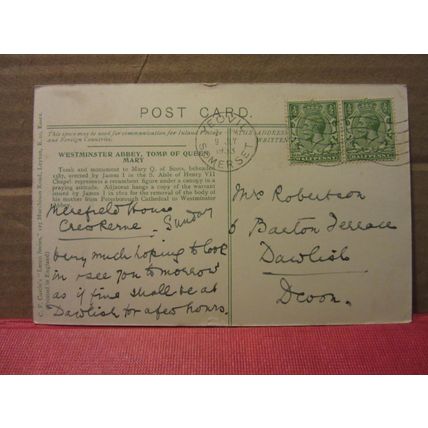 POST CARD.
This space may be used for communication for Inland Postage
and Foreign Countries.
THE ADDRESS
WRITTEN
WESTMINSTER ABBEY, TOMB OF QUEEN
MARY
Tomb and monument to Mary Q. of Scots, beheaded
1587, erected by James I in the S. Aisle of Henry VII
Chapel represents a recumbent figure under a canopy in a
praying attitude. Adjacent hangs a copy of the warrant
issued by James I in 1612 for the removal of the body of
his mother from Peterborough Cathedral to Westminster
Abbey.
Merefield House
Crewkerne. Sunday
very much hoping to look
in & see you tomorrow
as if fine shall be at
Dawlish for a few hours.
YEOVIL
SOMERSET
Mrs Robertson
Barton Terrace
Dawlish
Devon.
(Printed in England)